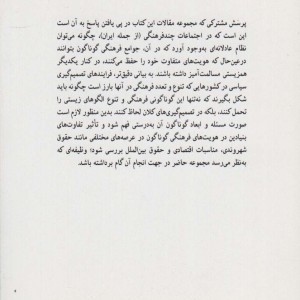 پرسش مشترکی که مجموعه مقالات این کتاب در پی یافتن پاسخ به آن است
این است که در اجتماعات چندفرهنگی (از جمله ایران)، چگونه می‌توان
نظام عادلانه‌ای به‌وجود آورد که در آن، جوامع فرهنگی گوناگون بتوانند
درعین‌حال که هویت‌های متفاوت خود را حفظ می‌کنند، در کنار یکدیگر
همزیستی مسالمت‌آمیز داشته باشند. به بیانی دقیق‌تر، فرایندهای تصمیم‌گیری
سیاسی در کشورهایی که تنوع و تعدد فرهنگی در آنها بارز است چگونه باید
شکل بگیرند که نه‌تنها این گوناگونی فرهنگی و تنوع الگوهای زیستی را
تحمل کنند، بلکه در تصمیم‌گیری‌های کلان لحاظ کنند. بدین منظور لازم است
صورت مسئله و ابعاد گوناگون آن به‌درستی فهم شود و تأثیر تفاوت‌های
بنیادین در هویت‌های فرهنگی گوناگون در عرصه‌های مختلفی مانند حقوق
شهروندی، مناسبات اقتصادی و حقوق بین‌الملل بررسی شود؛ وظیفه‌ای که
به‌نظر می‌رسد مجموعه حاضر در جهت انجام آن گام برداشته باشد.